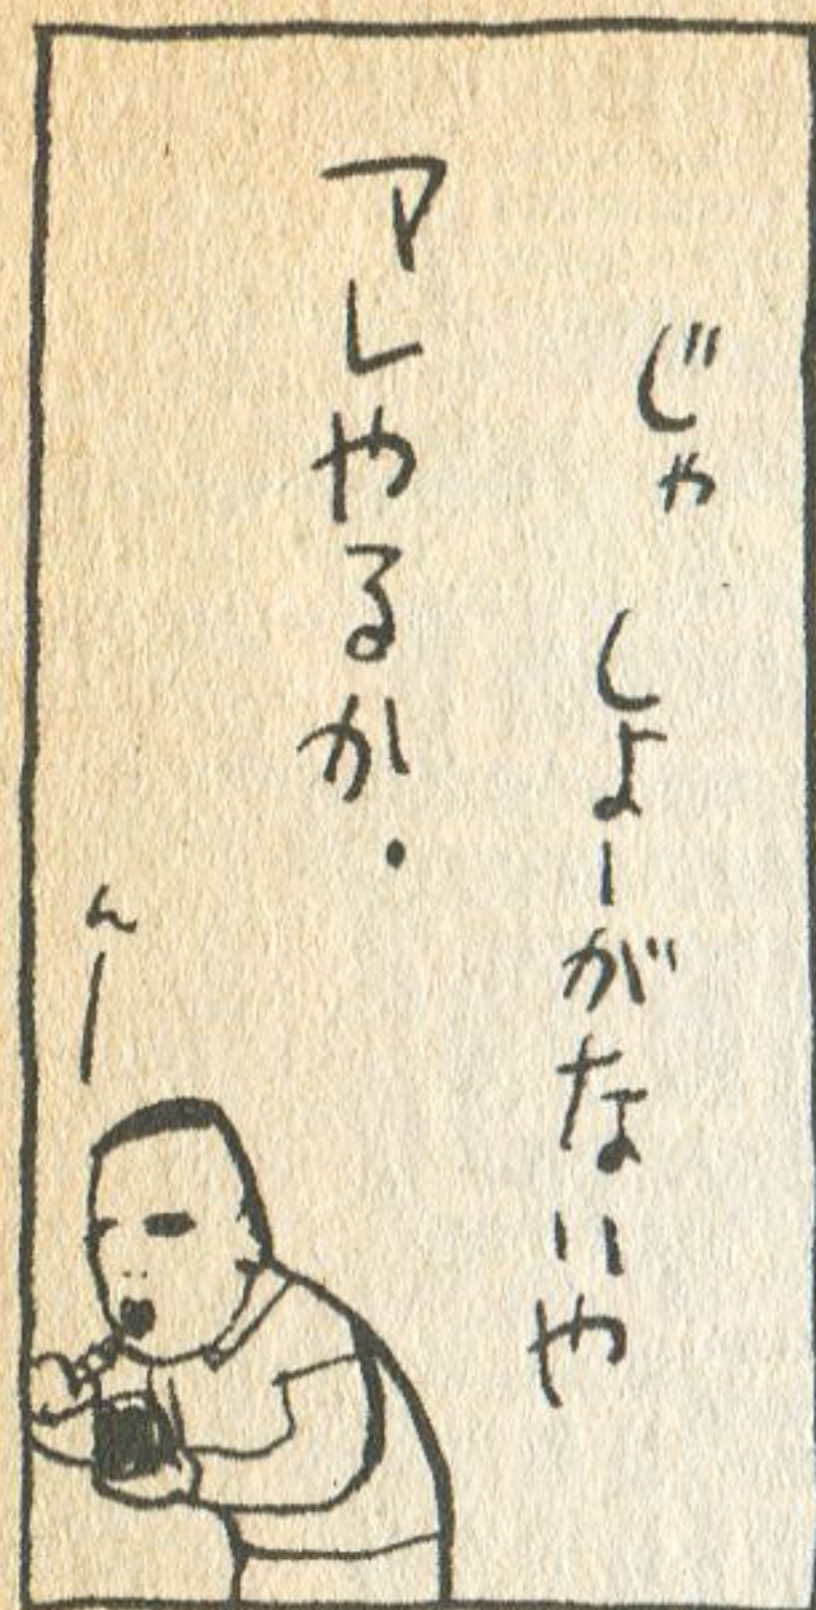 じゃ しょーがないや
アレやるか.
んー